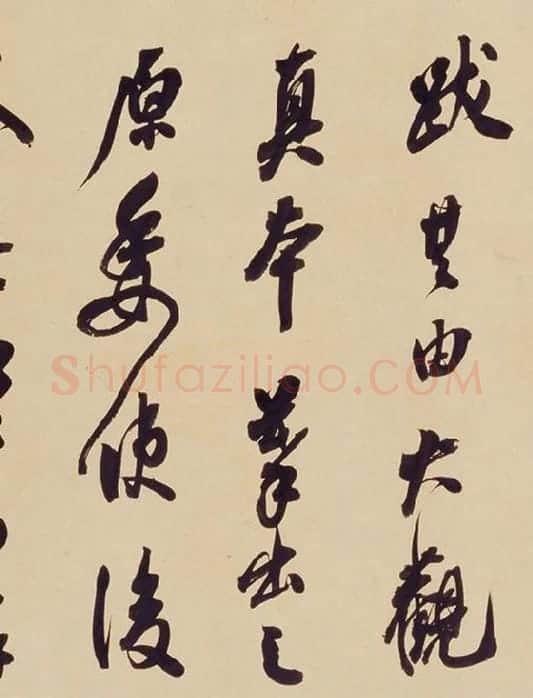 跋其由大觀
真本摹出之
原委使後
Shufaziliao.COM